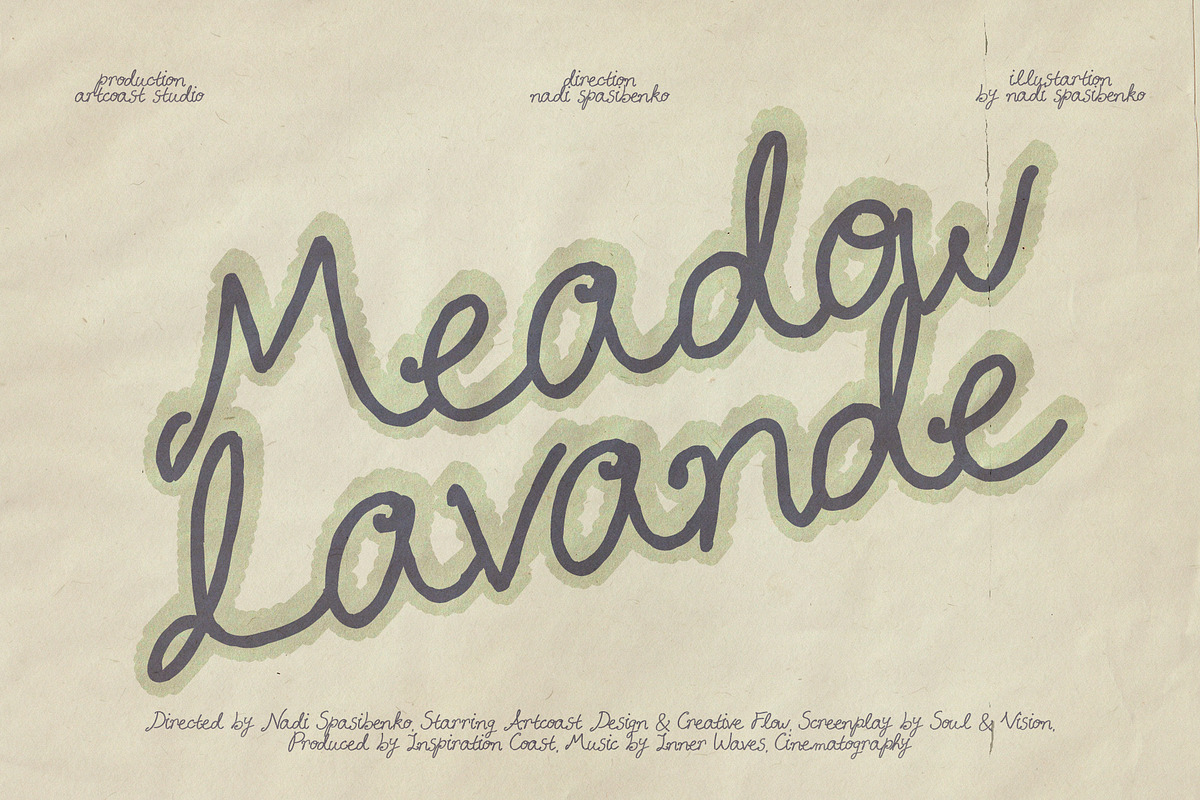 production
artcoast studio
direction
nadi spasibenko
illustartion
by nadi spasibenko
Meadow
Lavande
Directed by Nadi Spasibenko, Starring Artcoast Design & Creative Flow, Screenplay by Soul & Vision,
Produced by Inspiration Coast, Music by Inner Waves, Cinematography